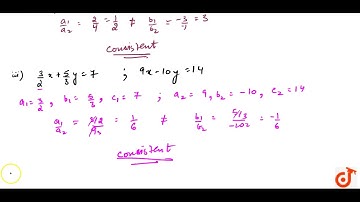 a₁/a₂ = 2/4 = 1/2 ≠ b₁/b₂ = -3/1 = 3
consistent
iii) 3/2 x + 5/3 y = 7 ; 9x - 10y = 14
a₁ = 3/2, b₁ = 5/3, c₁ = 7 ; a₂ = 9, b₂ = -10, c₂ = 14
a₁/a₂ = 3/2/9 = 1/6 ≠ b₁/b₂ = 5/3/-10 = -1/6
consistent